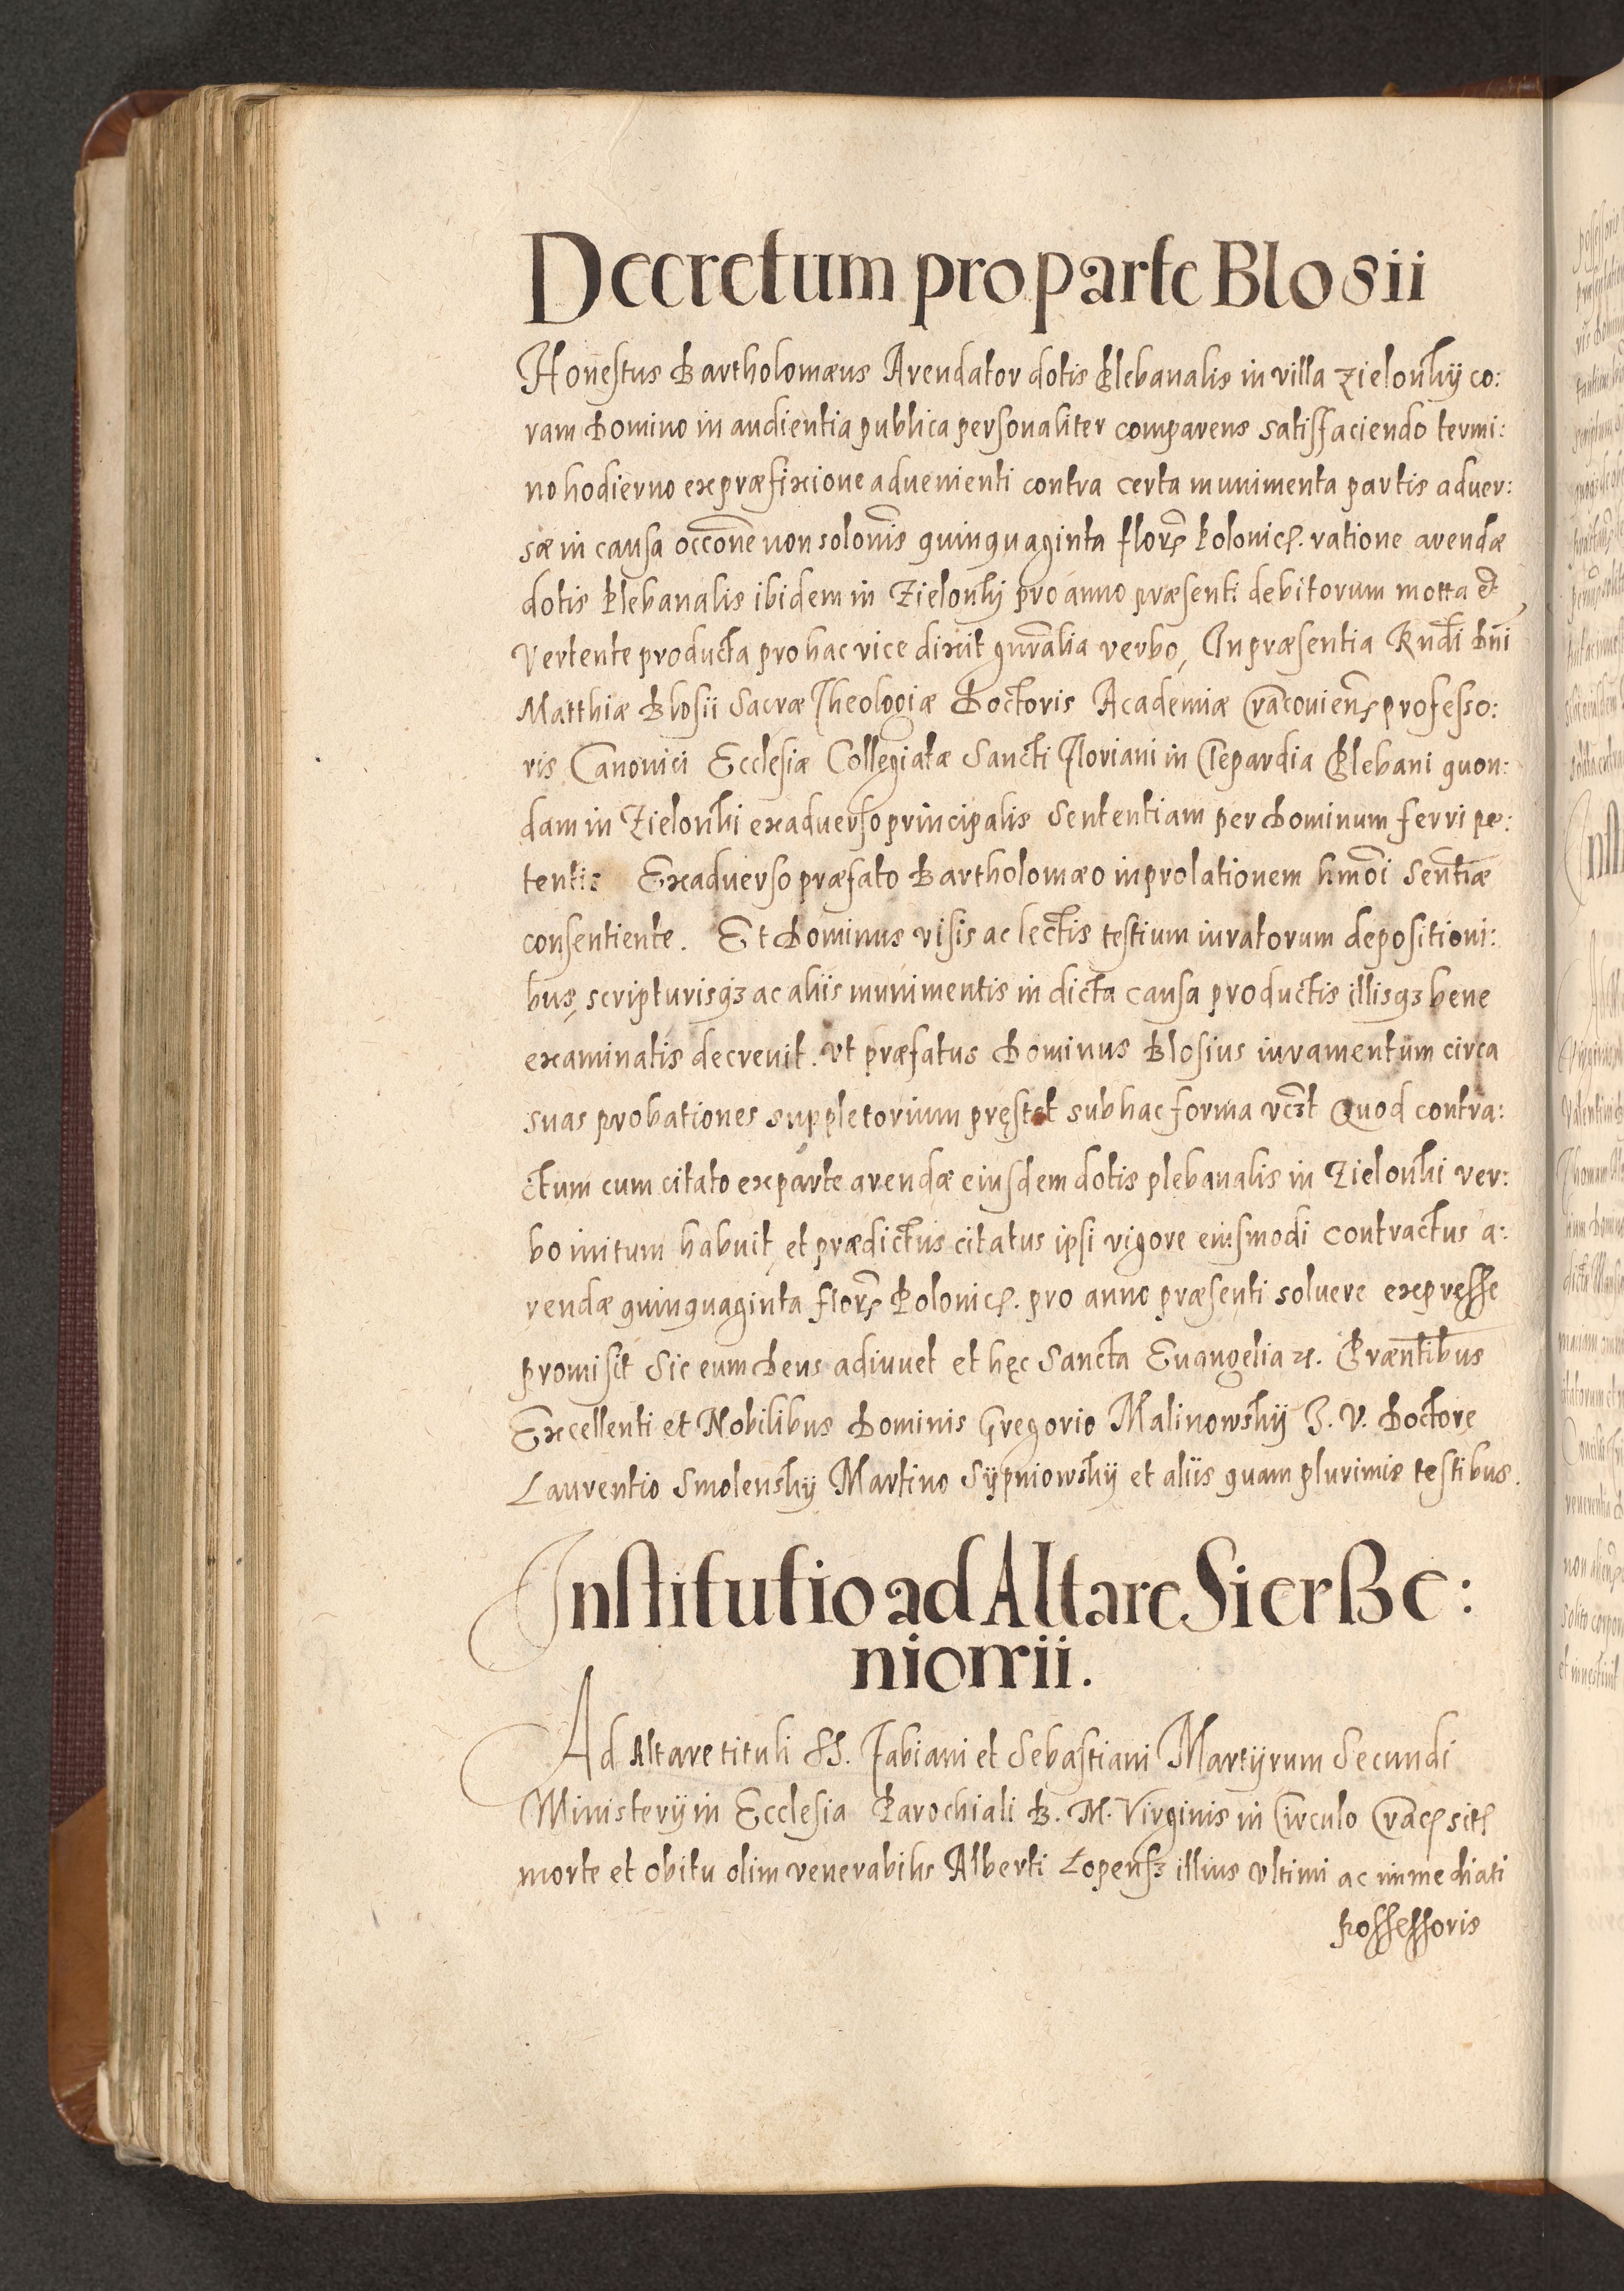 Decretum pro parte Blosii
Honestus Bartholomæus Arendator dotis Plebanalis in villa Zielonkÿ co:
ram Domino in audientia publica personaliter comparens satisfaciendo termi:
no hodierno ex præfixione aduenienti contra certa munimenta partis aduer:
sæ in causa occōne non solonīs quinquaginta florꝭ Polonicꝭ. ratione arendæ
dotis Plebanalis ibidem in Zielonkÿ pro anno præsenti debitorum motta et
vertente producta pro hac vice dixit gnrālia verbo, In præsentia Rndī Dnī
Matthiæ Blosii Sacræ Theologiæ Doctoris Academiæ Cracouienꝭ professo:
ris Canonici Ecclesiæ Collegiatæ Sancti Floriani in Clepardia Plebani quon:
dam in Zielonki ex aduerso principalis Sententiam per Dominum ferri pe:
tentis Ex aduerso præfato Bartholomæo in prolationem hmōi Sentīæ
consentiente. Et Dominus visis ac lectis testium iuratorum depositioni:
bus, scripturisqꝫ ac aliis munimentis in dicta causa productis illisqꝫ bene
examinatis decreuit. Vt præfatus Dominus Blosius iuramentum circa
suas probationes suppletorium pręstet sub hac forma vcꝫt Quod contra:
ctum cum citato ex parte arendæ eiusdem dotis plebanalis in Zielonki ver:
bo initum habuit, et prædictus citatus ipsi vigore eiusmodi contractus a:
rendæ quinquaginta florꝭ Polonicꝭ. pro anno præsenti soluere expresse
promisit Sic eum Deus adiuuet et hęc Sancta Euangelia ꝛc. Præntibus
Excellenti et Nobilibus Dominis Gregorio Malinowskÿ I. V. Doctore
Laurentio Smolenskÿ Martino Sÿpniowskÿ et aliis quam plurimis testibus.
Institutio ad Altare Sierße:
niorrii.
Ad Altare tituli SS. Fabiani et Sebastiani Martÿrum Secundi
Ministerÿ in Ecclesia Parochiali B. M. Virginis in Circulo Cracꝭ sitꝭ
morte et obitu olim venerabilis Alberti Lopensꝫ illius vltimi ac immediati
Possessoris